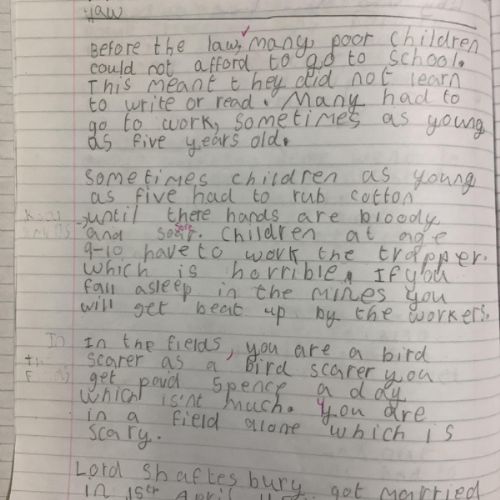 law
Before the law, many poor children
could not afford to go to school.
This meant they did not learn
to write or read. Many had to
go to work, sometimes as young
as five years old.
Sometimes children as young
as five had to rub cotton
until there hands are bloody
and sore. Children at age
9-10 have to work the trapper.
which is horrible. If you
fall asleep in the mines you
will get beat up by the workers.
In In the fields, you are a bird
scarer as a bird scarer you
get paid 5pence a day
which is'nt much. you are
in a field alone which is
scary.
Lord Shaftesbury got married
in